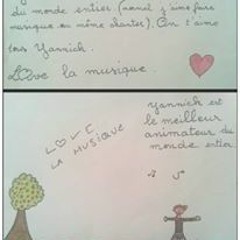 du monde entier. (maniel j'aime faire
musique ou même chanter). On t'aime
tous Yannick.
Love la musique.
LOVE
LA MUSIQUE
Yannick est
le meilleur
animateur du
monde entier.